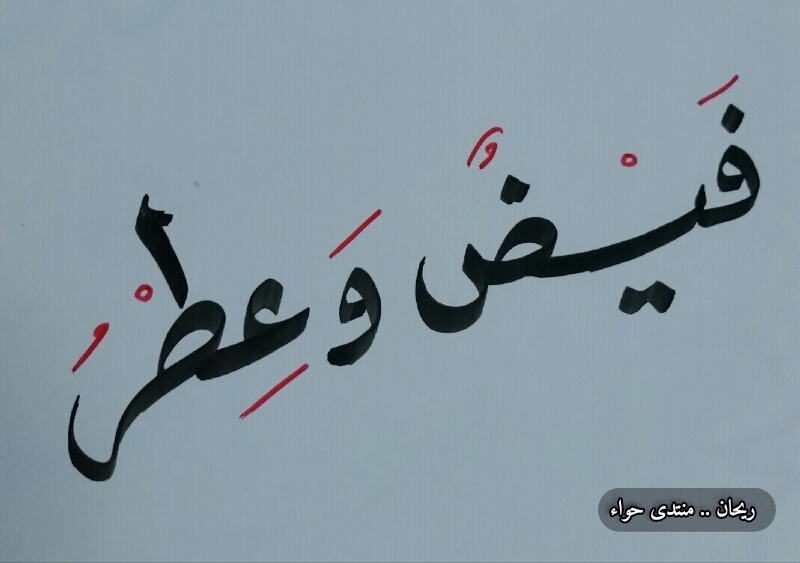 فَيْضٌ وَعِطْرُ
ريحان .. منتدى حواء